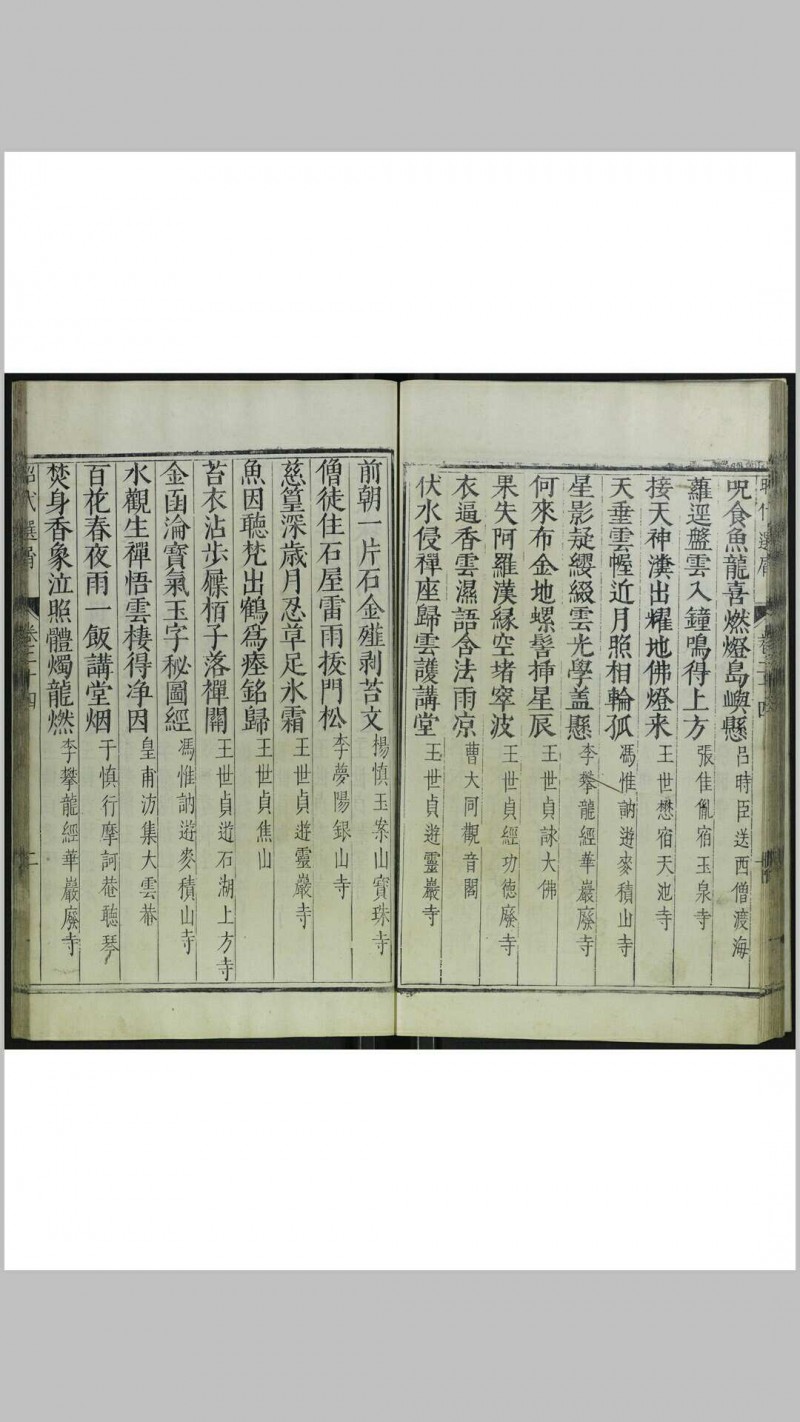 呪食魚龍喜燃燈島嶼懸 呂時臣送西僧渡海
蘿逕盤雲入鐘鳴得上方 張佳胤宿玉泉寺
接天神瀵出耀地佛燈来 王世懋宿天池寺
天垂雲幄近月照相輪孤 馮惟訥遊麥積山寺
星影疑纓綴雲光學盖懸 李攀龍經華巖廢寺
何來布金地螺髻揷星辰 王世貞詠大佛
果失阿羅漢緣空堵窣波 王世貞經功徳廢寺
衣逼香雲濕語含法雨凉 曹大同觀音閣
伏水侵禪座歸雲護講堂 王世貞遊靈巖寺
前朝一片石金薤剥苔文 楊慎玉案山寶珠寺
僧徒住石屋雷雨拔門松 李夢陽銀山寺
慈篁深歳月忍草足氷霜 王世貞遊靈巖寺
魚因聽梵出鶴爲瘞銘歸 王世貞焦山
苔衣沾步屧栢子落禪關 王世貞遊石湖上方寺
金函淪寶氣玉字秘圖經 馮惟訥遊麥積山寺
水觀生禪悟雲棲得净因 皇甫汸集大雲菴
百花春夜雨一飯講堂烟 于慎行摩訶菴聽琴
焚身香象泣照體燭龍燃 李攀龍經華巖廢寺
卷三十四
二